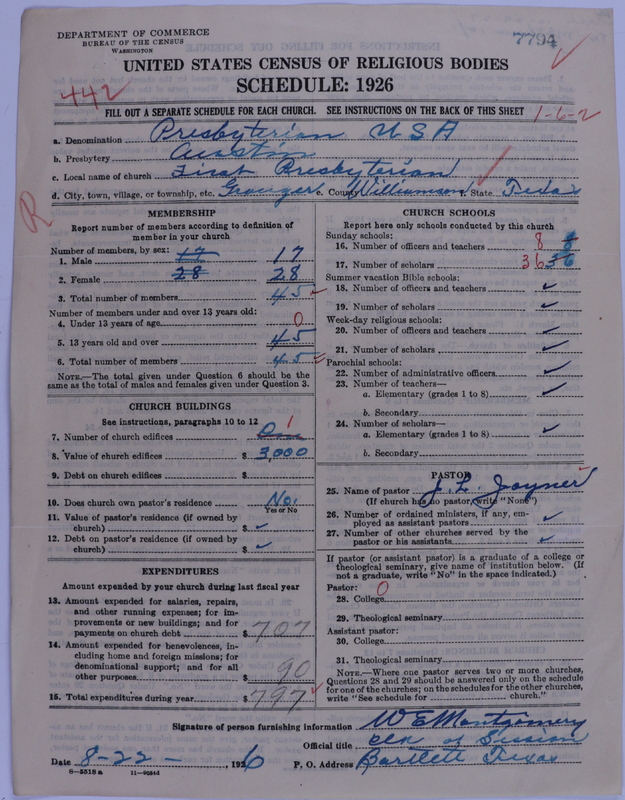 DEPARTMENT OF COMMERCE
BUREAU OF THE CENSUS
WASHINGTON
7794
UNITED STATES CENSUS OF RELIGIOUS BODIES
SCHEDULE: 1926
442
FILL OUT A SEPARATE SCHEDULE FOR EACH CHURCH. SEE INSTRUCTIONS ON THE BACK OF THIS SHEET
1-6-2
a. Denomination Presbyterian U S A
b. Presbytery Austin
c. Local name of church First Presbyterian
d. City, town, village, or township, etc. Granger e. County Williamson f. State Texas
R
MEMBERSHIP
Report number of members according to definition of
member in your church
Number of members, by sex:
1. Male 17 17
2. Female 28 28
3. Total number of members 45
Number of members under and over 13 years old:
4. Under 13 years of age 0
5. 13 years old and over 45
6. Total number of members 45
NOTE.—The total given under Question 6 should be
the same as the total of males and females given under Question 3.
CHURCH BUILDINGS
See instructions, paragraphs 10 to 12
7. Number of church edifices One 1
8. Value of church edifices $ 3,000
9. Debt on church edifices $
10. Does church own pastor's residence No.
Yes or No
11. Value of pastor's residence (if owned by
church) $ ✓
12. Debt on pastor's residence (if owned by
church) $ ✓
EXPENDITURES
Amount expended by your church during last fiscal year
13. Amount expended for salaries, repairs,
and other running expenses; for im-
provements or new buildings; and for
payments on church debt $ 707
14. Amount expended for benevolences, in-
cluding home and foreign missions; for
denominational support; and for all
other purposes $ 90
15. Total expenditures during year $ 797
CHURCH SCHOOLS
Report here only schools conducted by this church
Sunday schools:
16. Number of officers and teachers 8
17. Number of scholars 36 36
Summer vacation Bible schools:
18. Number of officers and teachers ✓
19. Number of scholars ✓
Week-day religious schools:
20. Number of officers and teachers ✓
21. Number of scholars ✓
Parochial schools:
22. Number of administrative officers ✓
23. Number of teachers—
a. Elementary (grades 1 to 8) ✓
b. Secondary
24. Number of scholars—
a. Elementary (grades 1 to 8) ✓
b. Secondary
PASTOR
25. Name of pastor J. L. Joyner
(If church has no pastor, write "None")
26. Number of ordained ministers, if any, em-
ployed as assistant pastors ✓
27. Number of other churches served by the
pastor or his assistants ✓
If pastor (or assistant pastor) is a graduate of a college or
theological seminary, give name of institution below. (If
not a graduate, write "No" in the space indicated.)
Pastor: 0
28. College
29. Theological seminary
Assistant pastor:
30. College
31. Theological seminary
NOTE.—Where one pastor serves two or more churches,
Questions 28 and 29 should be answered only on the schedule
for one of the churches; on the schedules for the other churches,
write "See schedule for church."
Signature of person furnishing information W E Montgomery
Official title Clk of Session
Date 8-22-, 1926 P. O. Address Bartlett Texas
8-5518 a